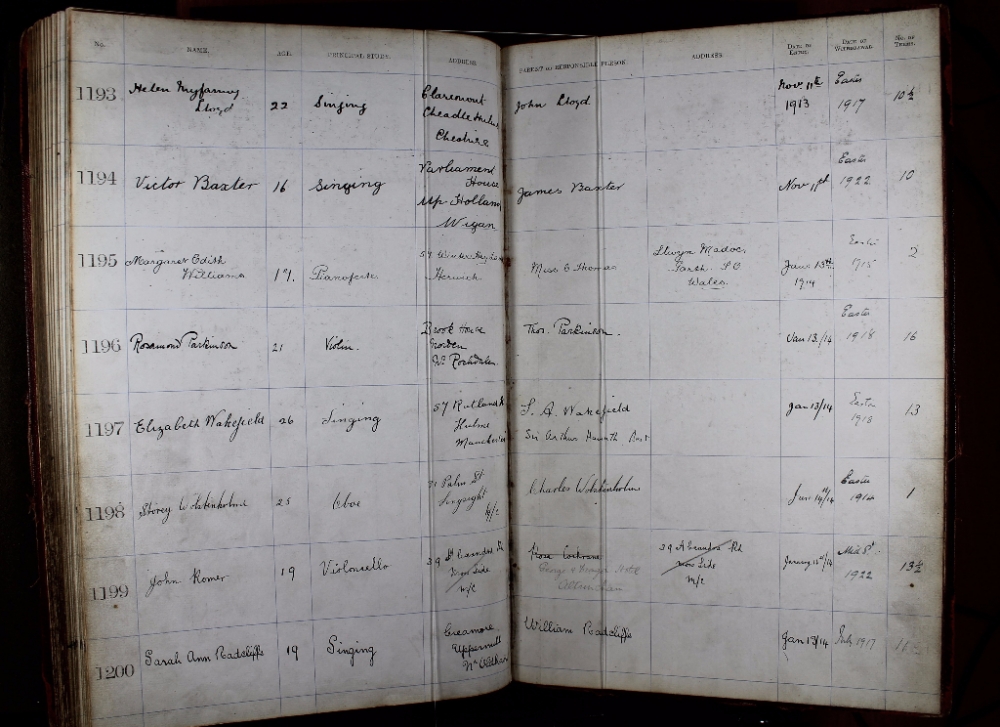 No. NAME. AGE. PRINCIPAL STUDY. ADDRESS PARENT OR RESPONSIBLE PERSON ADDRESS. DATE OF ENTRY. DATE OF WITHDRAWAL. NO. OF TERMS.
1193 Helen Myfanwy Lloyd 22 Singing Claremont Cheadle Hulme Cheshire John Lloyd Nov 11th 1913 Easter 1917 10½
1194 Victor Baxter 16 Singing Parliament House Up Holland Wigan James Baxter Nov 11th Easter 1922 10
1195 Margaret Edith Williams 17. Pianoforte 57 Horwich Miss E Thomas Llwyn Madoc, Garth. S.O Wales. Jany 13th 1914 Easter 1915 2
1196 Rosamond Parkinson 21 Violin. Brook House Nr Rochdale. Thos. Parkinson. Jan 13./14 Easter 1918 16
1197 Elizabeth Wakefield 26 Singing 57 Rutland St Hulme Manchester S. A. Wakefield Sir Arthur Jan 13/14 Easter 1918 13
1198 Storey Wolstenholme 25 Oboe 31 Palm St Longsight M/c Charles Wolstenholme Jan 14th/14 Easter 1914 1
1199 John Romer 19 Violoncello 39 Moss Side M/c Rose Cochrane George & Dragon Hotel Altrincham 39 Alexandra Rd Moss Side M/c January 15th/14 1922 13½
1200 Sarah Ann Radcliffe 19 Singing Uppermill Nr Oldham William Radcliffe Jan 13/14 July 1917 11